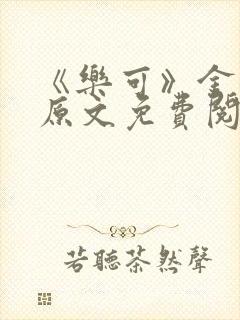 《樂可》全
原文免費閱
若聽茶然聲